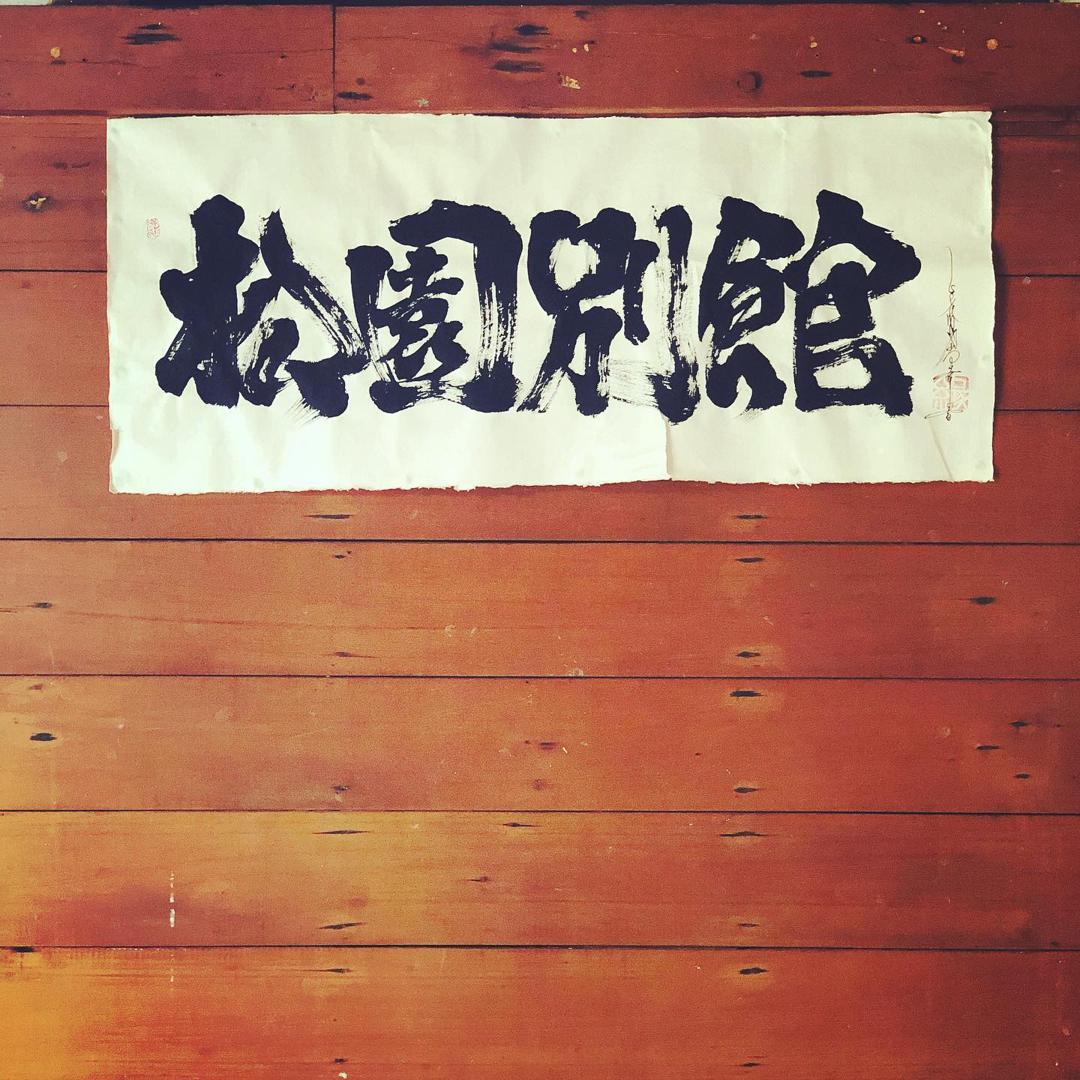 松園別館